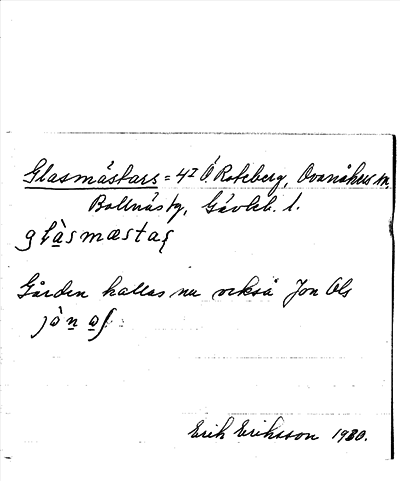 Glasmästars = 4² Ö Roteberg, Ovanåkers sn,
Bollnäs tg, Gävleb. l.
glàsmæstaʂ
Gården kallas nu också Jon Ols
jòn
Erik Eriksson 1980.